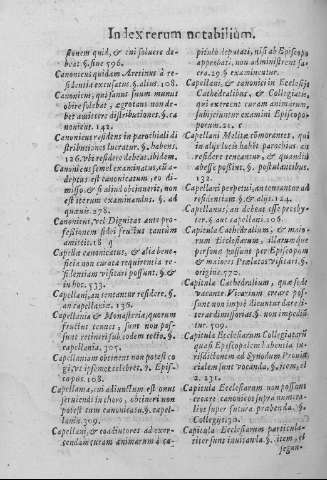 Index rerum notabilium.
stionem quid, & cui soluere de-
beat §. sine 596.
Canonicus quidam Aretinus à re-
sidentia excusatus §. alius. 108.
Canonicus, qui sanus suum munus
obire solebat, aegrotans non de-
bet amittere distributiones. §. ca
nonicus. 142.
Canonicus residens in parochiali di
stributiones lucratur §. habens,
126. vbi residere debeat, ibidem.
Canonicus semel examinatus, & ad-
deptus est canonicatum, eo di-
misso, & si aliud obtinuerit, non
est iterum examinandus. §. ad
quanis. 278.
Canonicus, vel Dignitas ante pro-
fessionem fidei fructus tantum
amittit. 18
Capellae canonicatus, & alia bene-
ficia non curata requirentia re-
sidentiam visitari possunt. §. &
in hoc. 533.
Capellani, an teneantur residere, §.
an capellania. 135.
Capellania & Monasteria, quorum
fructus tenues, sunt non pos-
sunt retineri simul eodem tecto, §.
capellania. 305.
Capellaniam obtinens non potest co
gi, vt ipsemet celebret, §. Epis-
copus. 108.
Capellania, cui adiunctum est onus
seruiendi in choro, obtineri non
potest cum canonicatu. §. capel-
lania. 309.
Capellani, & coadiutores ad exer-
cendam curam animarum à ca-
pitulo deputati, nisi ab Episcopo
approbati, non administrent sa-
cra. 29. § examinetur.
Capellani, & canonici in Ecclesijs
Cathedralibus, & Collegiatis,
qui exercent curam animarum,
subijciuntur examini Episco-
porum. 21. c
Capellani Melitae cōmorantes, qui
in alijs locis habēt parochias, an
residere teneantur, & quandiù
abesse possint. §. postulantibus.
132.
Capellani perpetui, an teneantur ad
residentiam §. & alijs. 124.
Capellanus, an debeat esse presby-
ter. §. aut capellano. 206.
Capitula Cathedralium, & maio-
rum Ecclesiarum, illarumque
personae possunt per Episcopum
& maiores Praelatos visitari §.
origine. 570.
Capitula Cathedralium, quae sede
vacante Vicarium creare possunt
sunt non impediuntur dare li-
teras dimissorias. §. non impedi-
tur. 509.
Capitula Ecclesiarum Collegiatarum
quasi Episcopalem habentia iu-
risdictionem ad Synodum Prouin
cialem sunt vocanda, §. item, el
2. 231.
Capitula Ecclesiarum non possunt
creare canonicos supra numera-
rios super futura praebenda. §.
Collegij. 30.
Capitula Ecclesiarum particula-
riter sunt inuitanda §. item, &
segun-